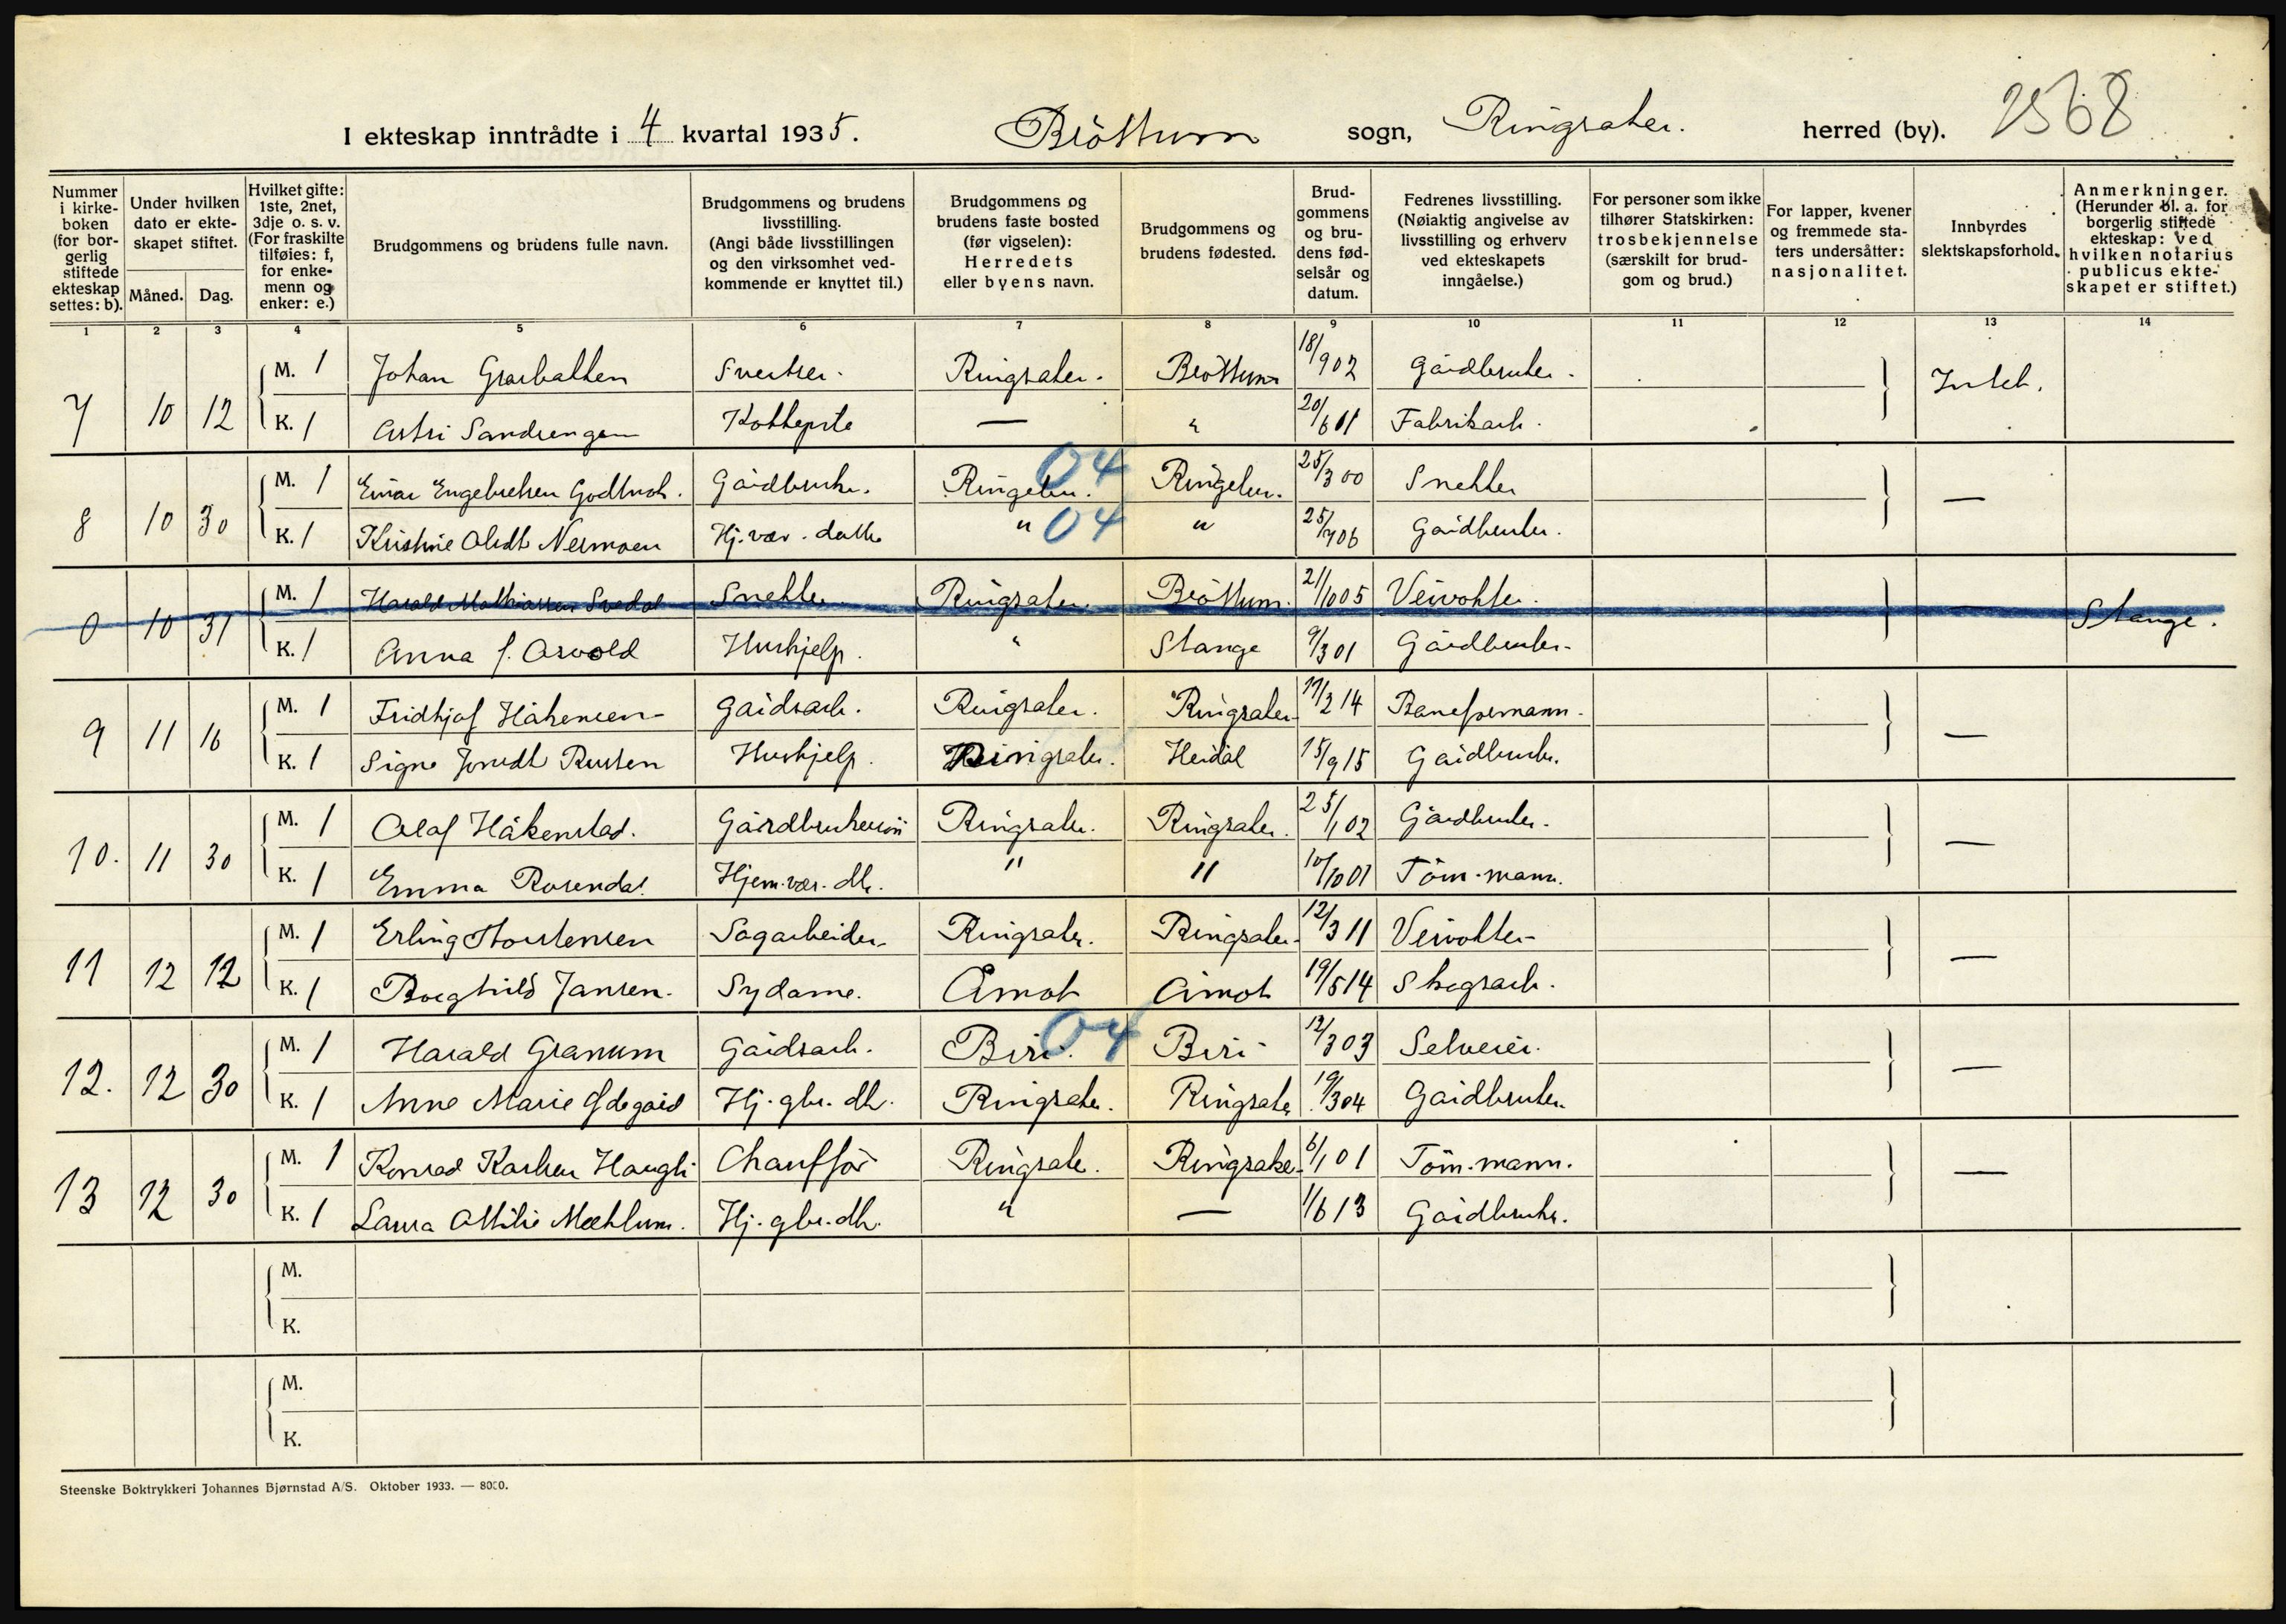 2568
I ekteskap inntrådte i 4 kvartal 1935. Brøttum sogn, Ringsaker. herred (by).
Nummer i kirke-boken (for bor-gerlig stiftede ekteskap settes: b).
Under hvilken dato er ekte-skapet stiftet.
Måned. Dag.
Hvilket gifte: 1ste, 2net, 3dje o. s. v. (For fraskilte tilføies: f, for enke-menn og enker: e.)
Brudgommens og brudens fulle navn.
Brudgommens og brudens livsstilling. (Angi både livsstillingen og den virksomhet ved-kommende er knyttet til.)
Brudgommens og brudens faste bosted (før vigselen): Herredets eller byens navn.
Brudgommens og brudens fødested.
Brud-gommens og bru-dens fød-selsår og datum.
Fedrenes livsstilling. (Nøiaktig angivelse av livsstilling og erhverv ved ekteskapets inngåelse.)
For personer som ikke tilhører Statskirken: trosbekjennelse (særskilt for brud-gom og brud.)
For lapper, kvener og fremmede sta-ters undersåtter: nasjonalitet.
Innbyrdes slektskapsforhold.
Anmerkninger. (Herunder bl. a. for borgerlig stiftede ekteskap: ved hvilken notarius publicus ekte-skapet er stiftet.)
1 2 3 4 5 6 7 8 9 10 11 12 13 14
7 10 12 M. 1 Johan Ringsaker. Brøttum 18/ 902 Gårdbruker.
K. 1 Astri Sandsengen — " 20/6 01 Fabrikarb.
8 10 30 M. 1 Einar Engebretsen Gårdbruker. Ringebu. 04 Ringebu. 25/3 00 Snekker
K. 1 Kristine Olsdt Nermoen Hj. vær. datter " 04 " 25/7 06 Gårdbruker.
0 10 31 M. 1 Harald Mathiassen Snekker Ringsaker. Brøttum. 21/10 05 Veivokter. — Stange.
K. 1 Anna J. Arvold Hushjelp. " Stange 9/3 01 Gårdbruker.
9 11 16 M. 1 Fridtjof Håkensen Gårdsarb. Ringsaker. Ringsaker 17/2 14 Baneformann. —
K. 1 Signe Rusten Hushjelp. Ringsaker. Heidal 15/9 15 Gårdbruker.
10. 11 30 M. 1 Olaf Håkenstad. Ringsaker. Ringsaker. 25/1 02 Gårdbruker. —
K. 1 Emma Rosendal Hjem. vær. dtr. " " 10/10 01 Töm. mann.
11 12 12 M. 1 Erling Thorstensen Sagarbeider Ringsaker. Ringsaker 12/3 11 Veivokter —
K. 1 Borghild Jansen. Sydame. Åmot Åmot 19/5 14 Skogsarb.
12. 12 30 M. 1 Harald Granum Gårdsarb. Biri. 04 Biri 12/3 03 Selveier. —
K. 1 Anne Marie Ødegård Hj. gbr. dtr. Ringsaker. Ringsaker 19/3 04 Gårdbruker
13 12 30 M. 1 Konrad Karlsen Haugli Chauffør Ringsaker. Ringsaker 6/1 01 Töm. mann. —
K. 1 Laura Ottilie Mæhlum. Hj. gbr. dtr. " — 1/6 13 Gårdbruker.
M.
K.
M.
K.
Steenske Boktrykkeri Johannes Bjørnstad A/S. Oktober 1933. — 8000.